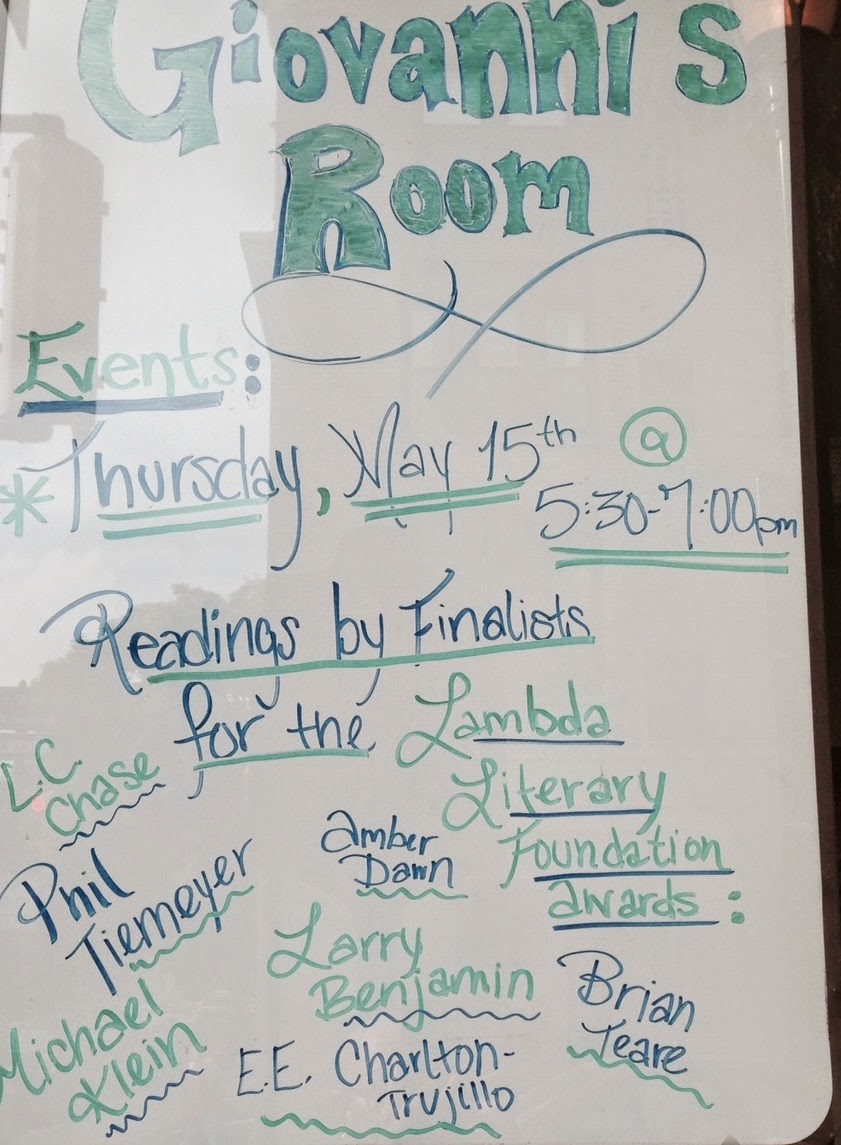 Giovanni's
Room
Events:
* Thursday, May 15th @
5:30-7:00pm
Readings by Finalists
for the Lambda
Literary
Foundation
awards:
L.C.
Chase
Phil
Tiemeyer
Michael
Klein
Amber
Dawn
Larry
Benjamin
E.E. Charlton-
Trujillo
Brian
Teare